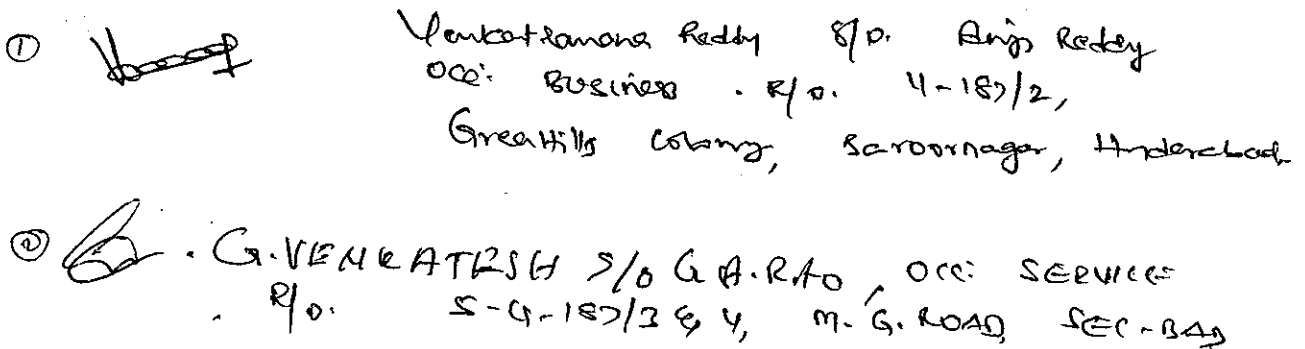 ① Venkatramana Reddy S/o. Anji Reddy
occ: Business . R/o. 4-187/2,
GreenHills Colony, Saroornagar, Hyderabad
② . G. VENKATESH S/o G.A. RAO, OCC: SERVICE
. R/o. 5-4-187/3 & 4, M. G. ROAD, SEC-BAD